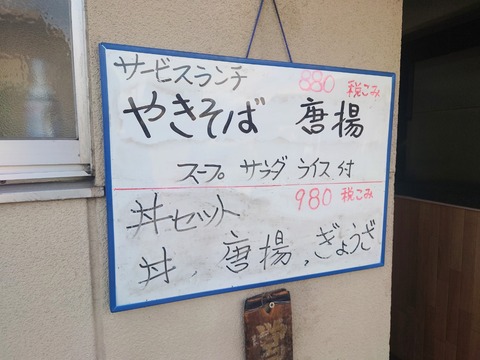 サービスランチ 880 税こみ
やきそば 唐揚
スープ サラダ ライス付
丼セット 980 税こみ
丼、唐揚、ぎょうざ